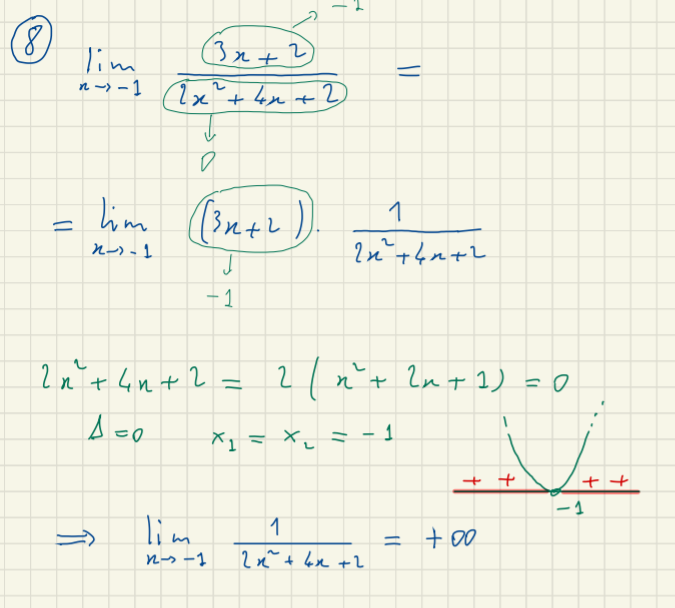 8
lim x→-1 (3x + 2)/(2x² + 4x + 2) =
→ -1
↓
0
= lim x→-1 (3x+2) · 1/(2x²+4x+2)
↓
-1
2x²+4x+2 = 2(x²+2x+1) = 0
Δ=0 x₁ = x₂ = -1
+ + + +
-1
⇒ lim x→-1 1/(2x²+4x+2) = +∞